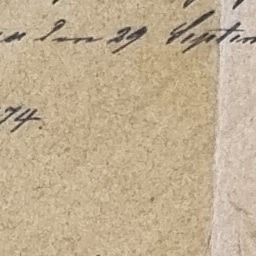 den 29 Septem
74.